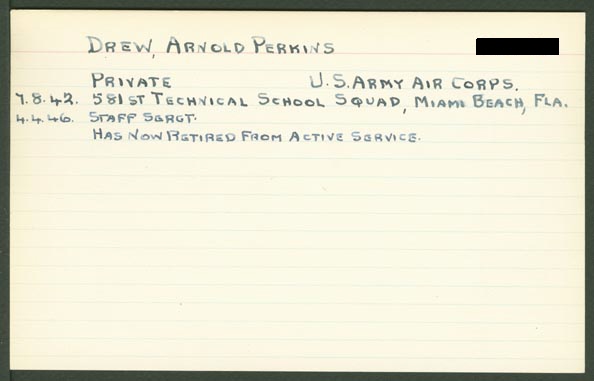 DREW, ARNOLD PERKINS
PRIVATE U.S. ARMY AIR CORPS.
7.8.42. 581ST TECHNICAL SCHOOL SQUAD, MIAMI BEACH, FLA.
4.4.46. STAFF SERGT.
HAS NOW RETIRED FROM ACTIVE SERVICE.